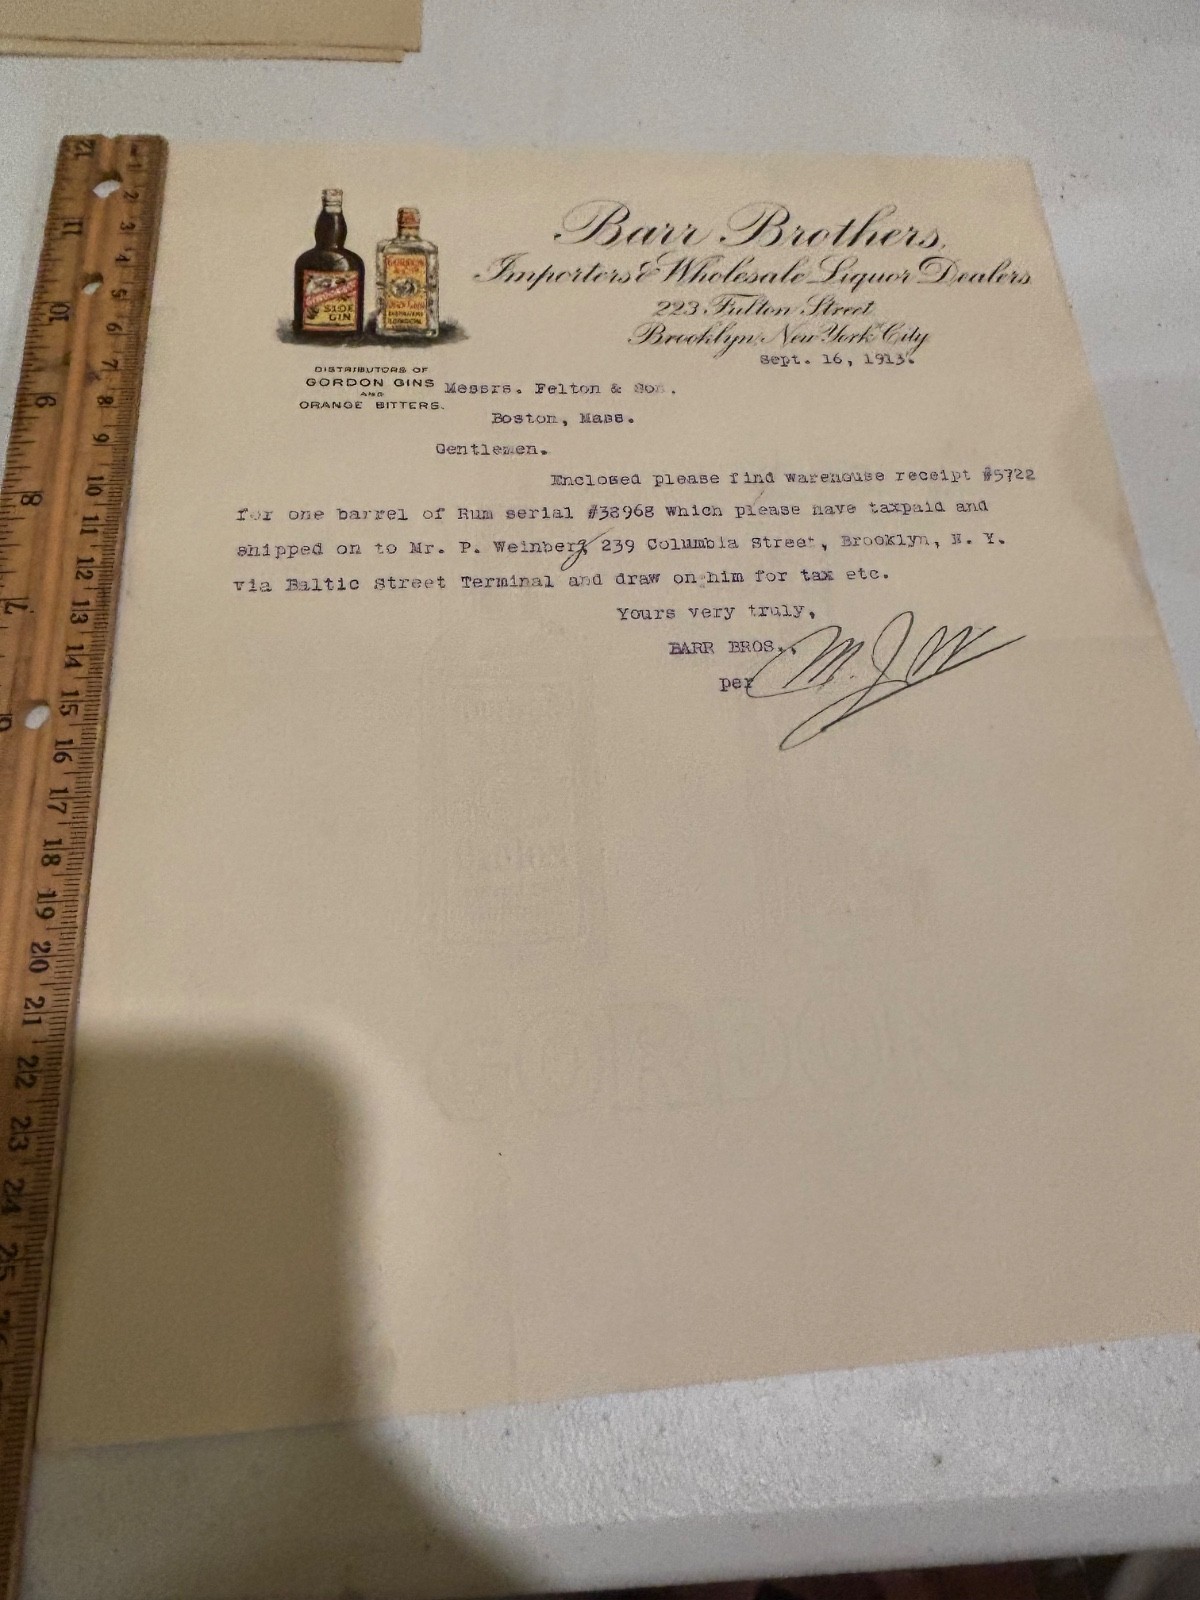 Barr Brothers,
Importers & Wholesale Liquor Dealers
223 Fulton Street
Brooklyn, New York City
Sept. 16, 1913.
GORDON
SLOE
GIN
DISTRIBUTORS OF
GORDON GINS
AND
ORANGE BITTERS.
Messrs. Felton & Son.
Boston, Mass.
Gentlemen.
Enclosed please find warehouse receipt #5722
for one barrel of Rum serial #38968 which please have taxpaid and
shipped on to Mr. P. Weinberg, 239 Columbia Street, Brooklyn, N. Y.
via Baltic Street Terminal and draw on him for tax etc.
Yours very truly,
BARR BROS.,
per M. J. W
12
11
10
9
8
7
1
2
3
4
5
6
7
8
9
10
11
12
13
14
15
16
17
18
19
20
21
22
23
24
25